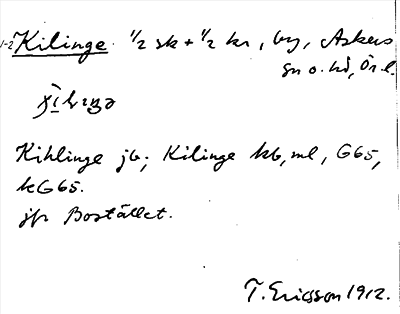 1-2 Kilinge. 1/2 sk + 1/2 kr, by, Askers
sn o. hd, Ör. l.
Kihlinge jb; Kilinge kb, ml, G65,
kG65.
jfr Bostället.
T. Ericsson 1912.